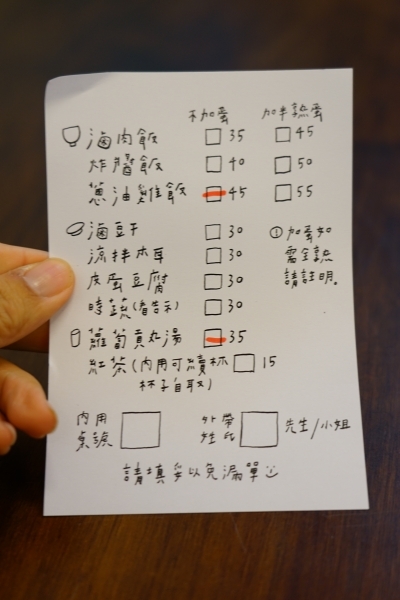 不加蛋 加半熟蛋
滷肉飯 35 45
炸醬飯 40 50
蔥油雞飯 45 55
滷豆干 30
涼拌木耳 30
皮蛋豆腐 30
時蔬(看告示) 30
①加蛋如
需全熟
請註明。
蘿蔔貢丸湯 35
紅茶(內用可續杯 15
杯子自取)
內用
桌號
外帶
姓氏
先生/小姐
請填妥以免漏單